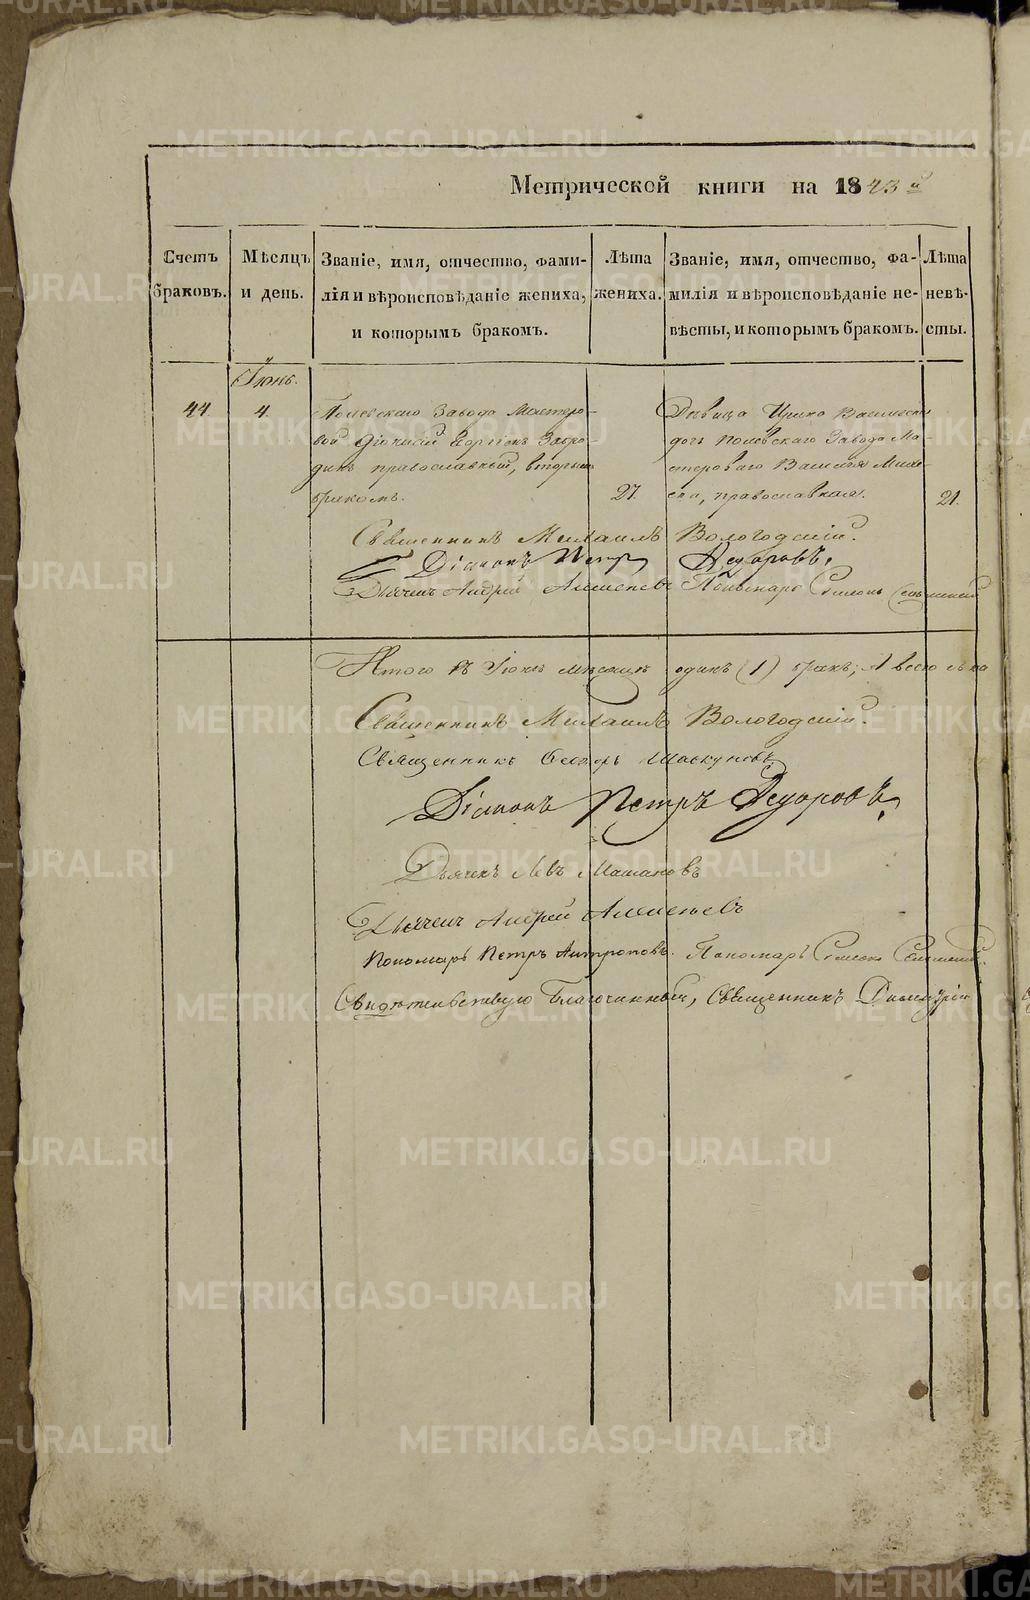 Метрической книги на 1843й
Счетъ браковъ.
Мѣсяцъ и день.
Званіе, имя, отчество, фами-
лія и вѣроисповѣданіе жениха,
и которымъ бракомъ.
Лѣта жениха.
Званіе, имя, отчество, фа-
милія и вѣроисповѣданіе не-
вѣсты, и которымъ бракомъ.
Лѣта невѣ-
сты.
Іюнь.
44.
4.
Полевскаго Завода Мастеро-
вой
динъ православный, вторымъ
бракомъ.
27.
Дѣвица
дочь Полевскаго Завода Ма-
стероваго Василья
православная.
21.
Священникъ Михаилъ Вологодскій.
Діаконъ Петръ Ѳедоровъ.
Дьячекъ Андрей Пономарь
Итого въ Іюнѣ мѣсяцѣ одинъ (1) бракъ; А всего
Священникъ Михаилъ Вологодскій.
Священникъ
Діаконъ Петръ Ѳедоровъ
Дьячекъ Левъ
Дьячекъ Андрей
Пономарь Петръ Антроповъ. Пономарь
Свидѣтельствую Благочинный, Священникъ Димитрій
METRIKI.GASO-URAL.RU